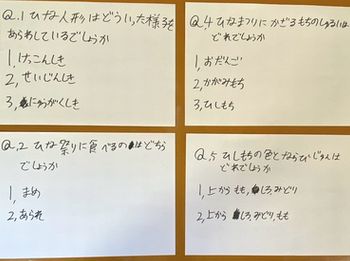 Q.1 ひな人形はどういった様子を
あらわしているでしょうか
1, けっこんしき
2, せいじんしき
3, にゅうがくしき
Q.2 ひな祭りに食べるのはどちら
でしょうか
1, まめ
2, あられ
Q.4 ひなまつりにかざるもちのしゅるいは
どれでしょうか
1, おだんご
2, かがみもち
3, ひしもち
Q.5 ひしもちの色とならびじゅんは
どれでしょうか
1, 上からもも, しろ, みどり
2, 上からしろ, みどり, もも